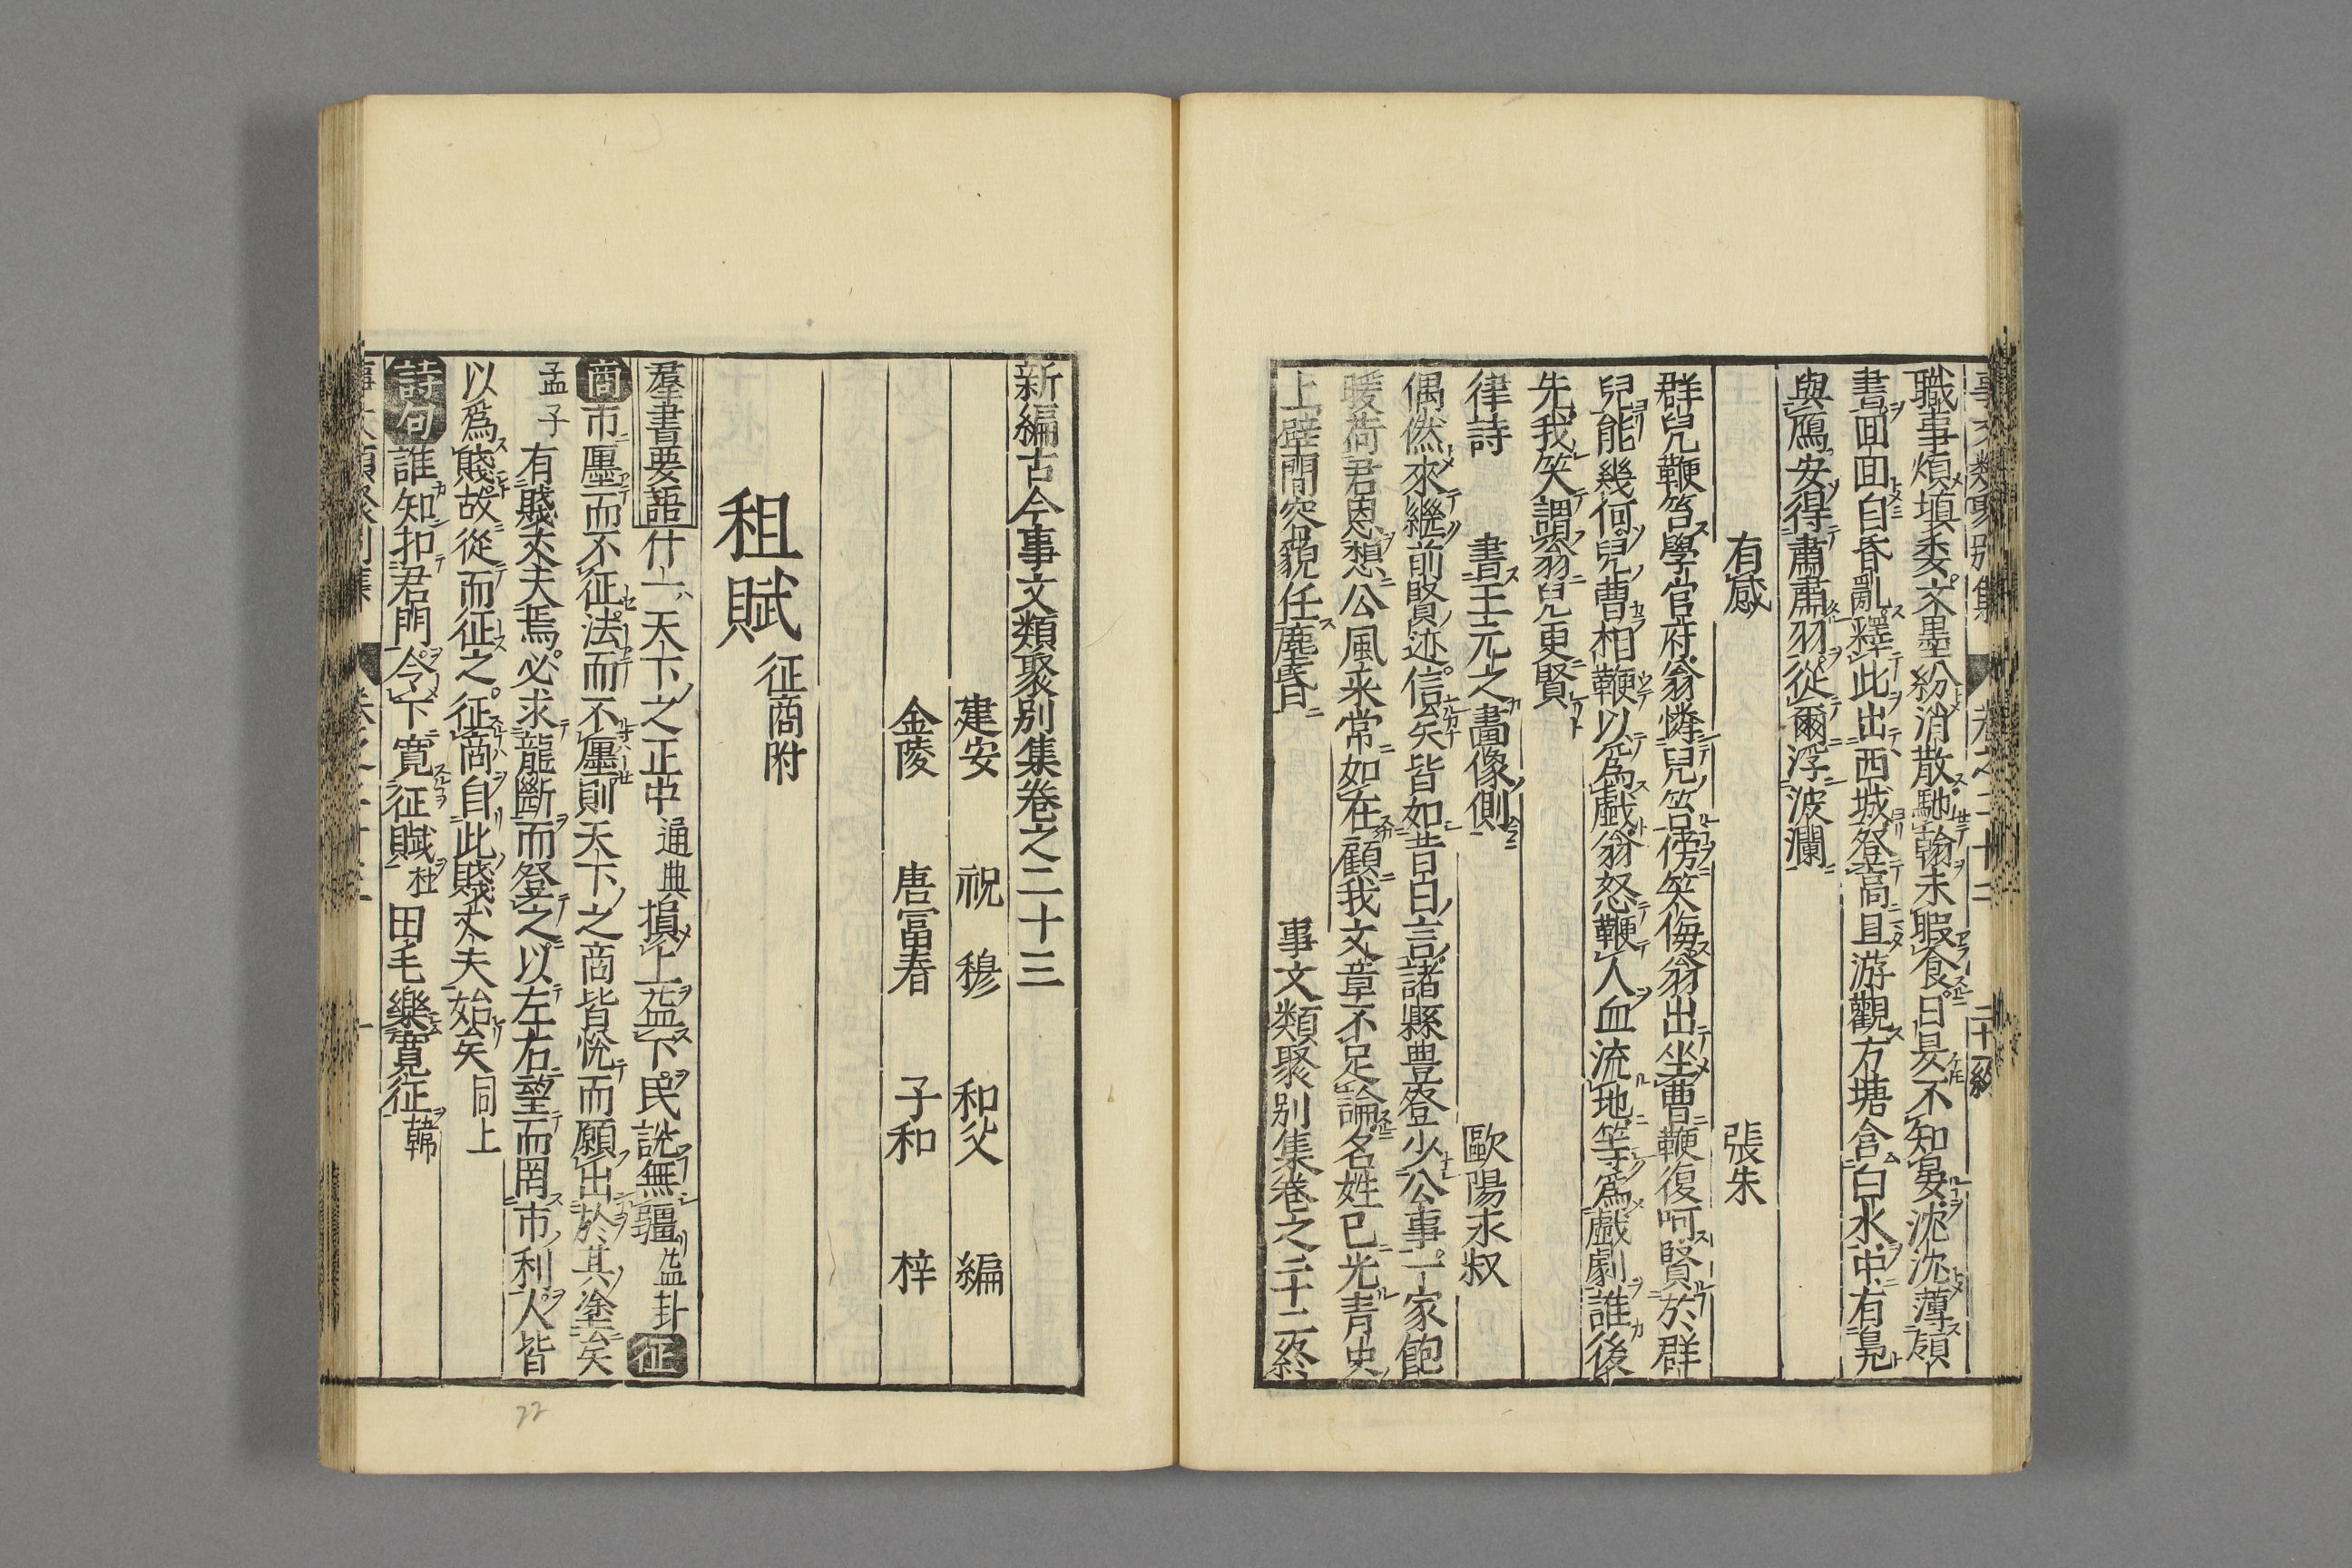 職事煩填委文墨紛消散馳翰未暇食日昃不知晏沈沈薄領
書面面自昏亂釋此出西城登高且游觀方塘含白水中有鳧
與鴈安得肅肅羽從爾浮波瀾
有感 張朱
群兒鞭笞學官府翁憐兒笞傍笑侮翁出坐曹鞭復呵賢於群
兒能幾何兒曹相鞭以爲戲翁怒鞭人血流地等爲戲劇誰後
先我笑謂翁兒更賢
律詩 書王元之畫像側 歐陽永叔
偶然來繼前賢迹信矣皆如昔日言諸縣豊登少公事一家飽
暖荷君恩想公風采常如在顧我文章不足論名姓已光青史
上壁間容貌任塵昏 事文類聚別集卷之二十二終
新編古今事文類聚別集卷之二十三
建安 祝 穆 和父 編
金陵 唐富春 子和 梓
租賦 征商附
羣書要語 什一天下之正中 通典 損上益下民說無疆 益卦 征
商 市廛而不征法而不廛則天下之商皆悅而願出於其塗矣
孟子 有賤丈夫焉必求龍斷而登之以左右望而罔市利人皆
以爲賤故從而征之征商自此賤丈夫始矣 同上
詩句 誰知扣君門令下寬征賦 杜 田毛樂寬征 韓
22